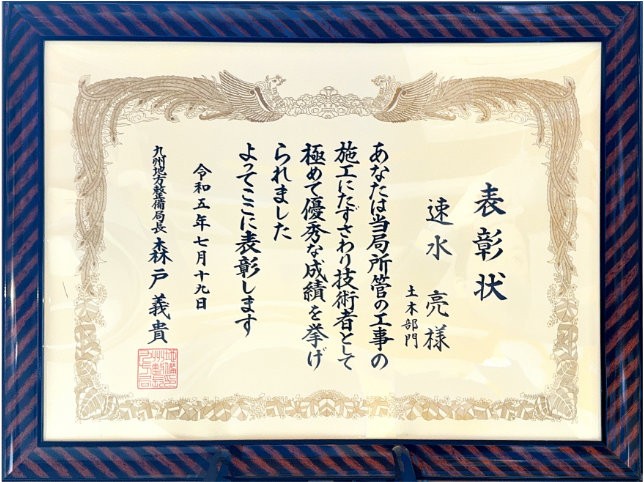 表彰状
速水亮様
土木部門
あなたは当局所管の工事の
施工にたずさわり技術者として
極めて優秀な成績を挙げ
られました
よってここに表彰します
令和五年七月十九日
九州地方整備局長 森戸義貴